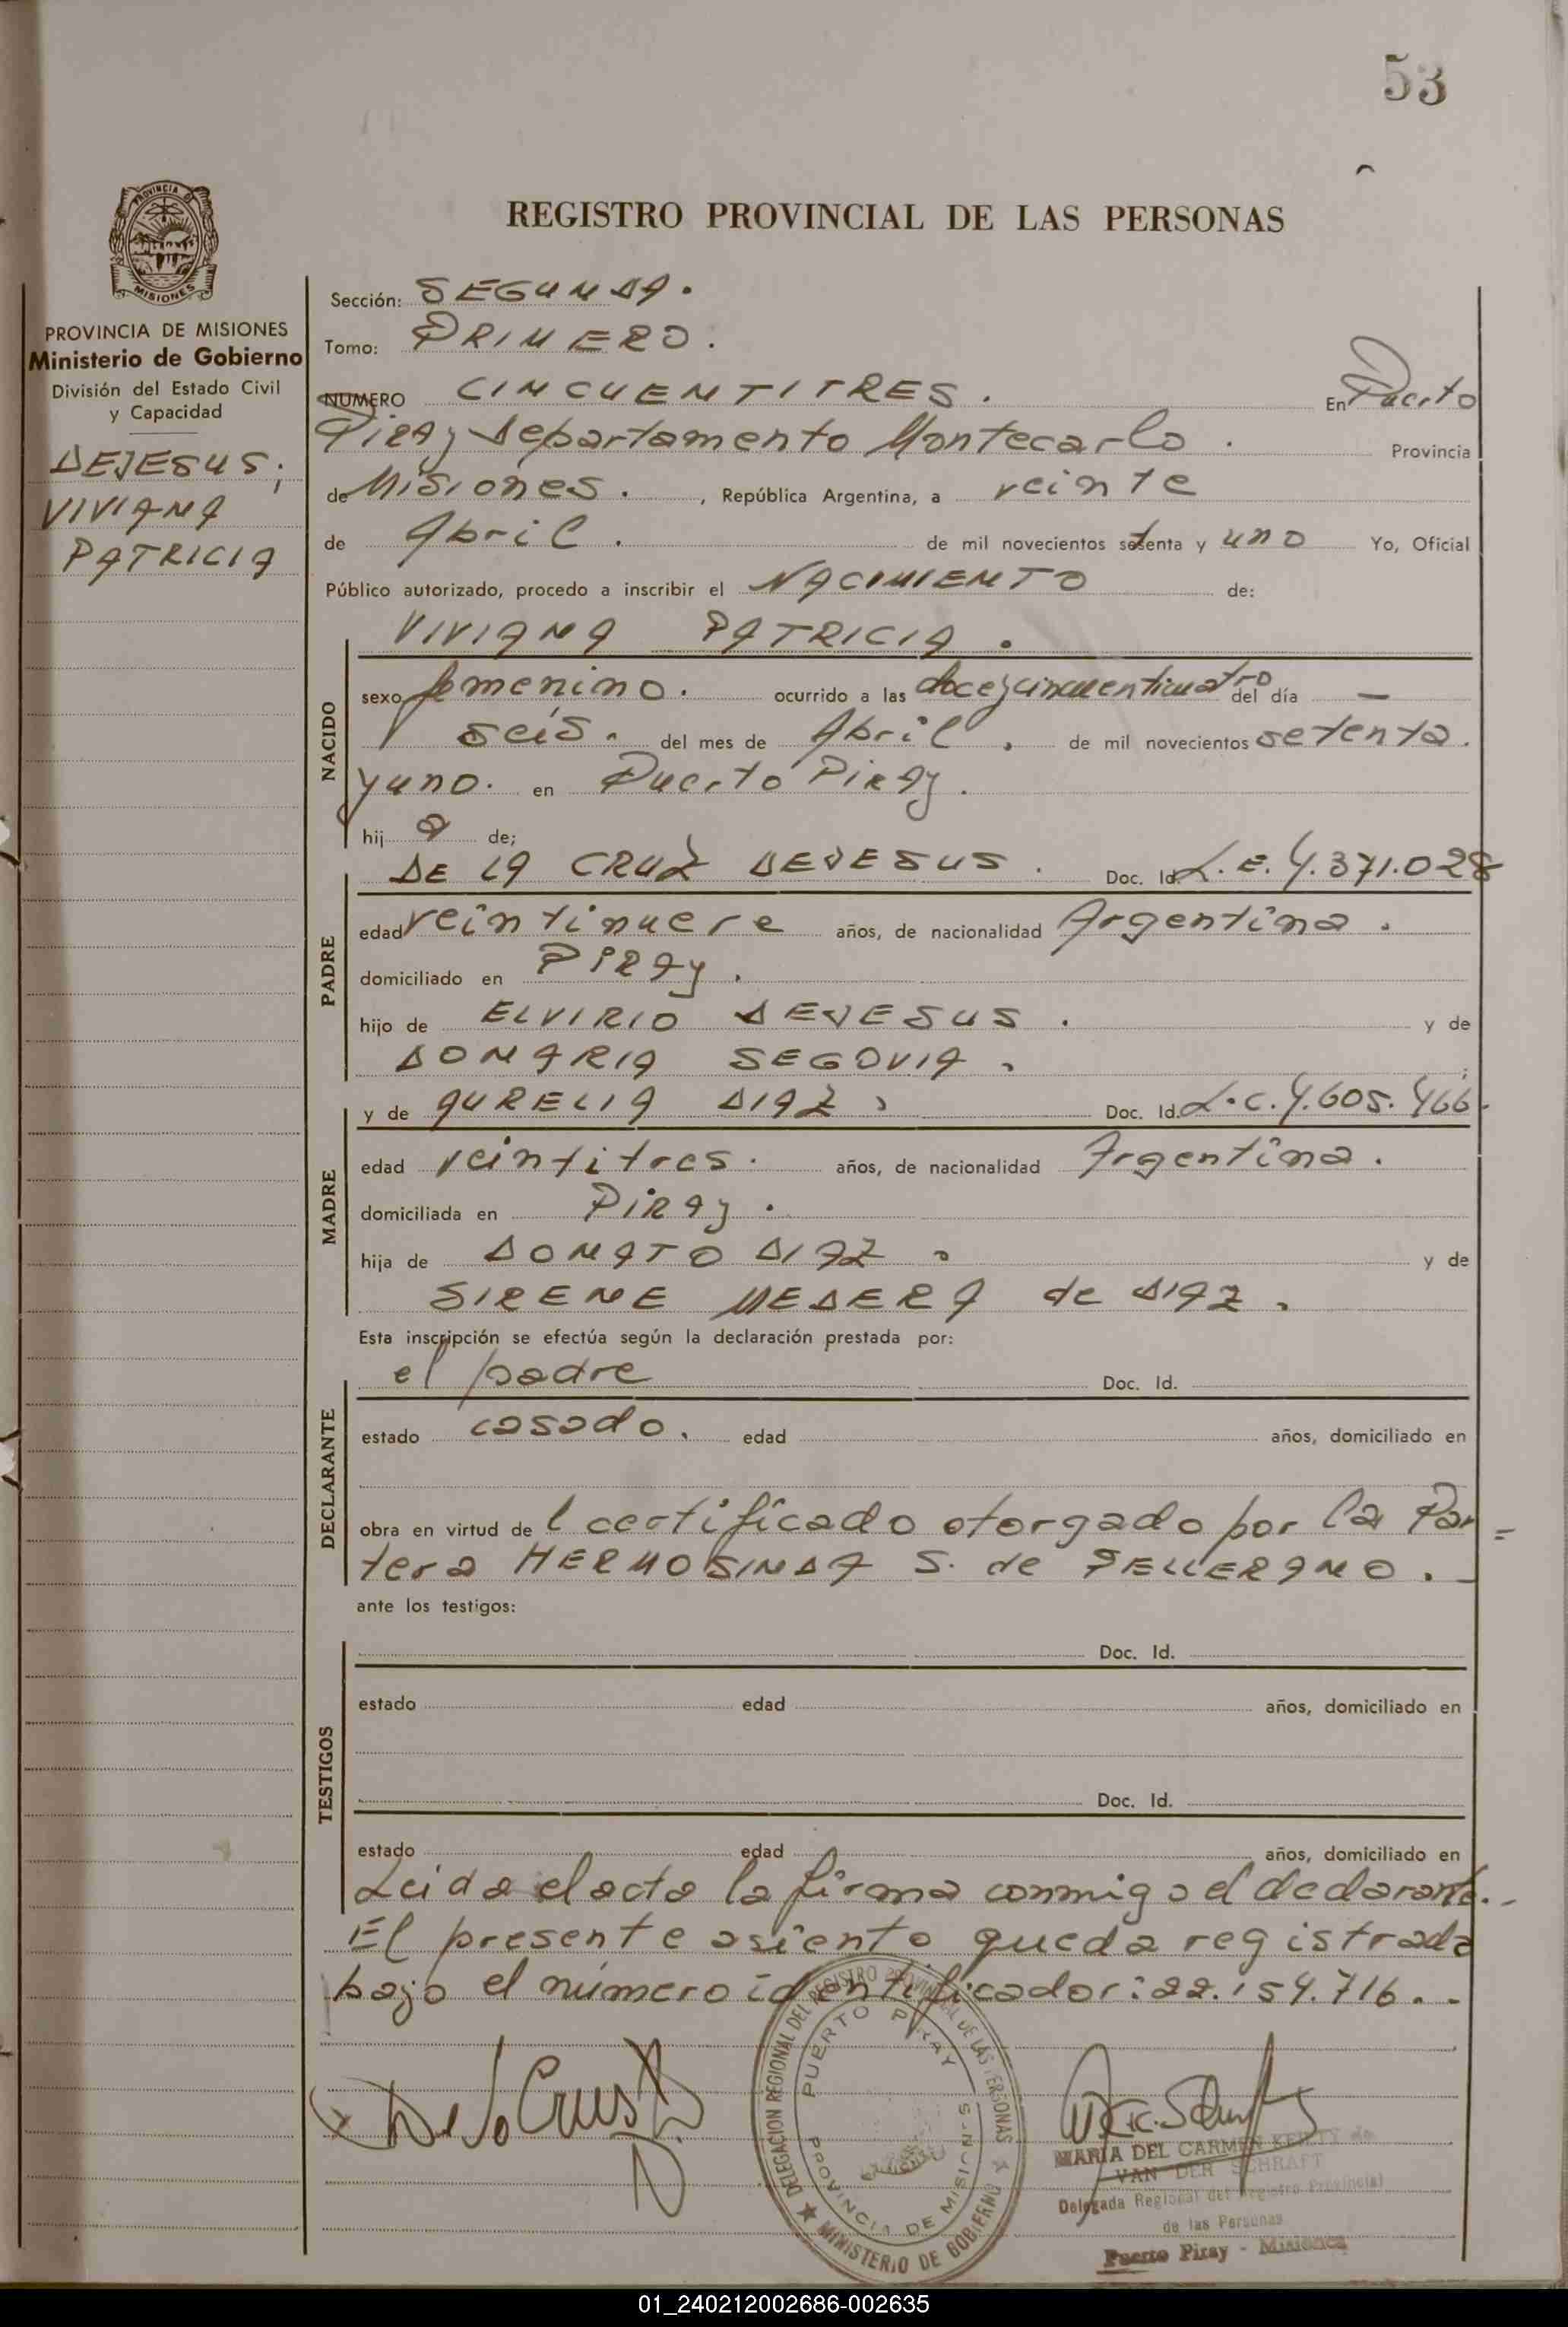 53
REGISTRO PROVINCIAL DE LAS PERSONAS
PROVINCIA DE MISIONES
Ministerio de Gobierno
División del Estado Civil
y Capacidad
DEJESUS;
VIVIANA
PATRICIA
Sección: SEGUNDA.
Tomo: PRIMERO.
NUMERO CINCUENTITRES. En Puerto
Piray Departamento Montecarlo. Provincia
de Misiones. , República Argentina, a veinte
de Abril. de mil novecientos setenta y uno Yo, Oficial
Público autorizado, procedo a inscribir el NACIMIENTO de:
VIVIANA PATRICIA.
NACIDO
sexo femenino. ocurrido a las doce y cincuenticuatro del día —
seis. del mes de Abril. de mil novecientos setenta.
y uno. en Puerto Piray.
hij a de;
DE LA CRUZ DEJESUS. Doc. Id. L.E. 4.371.028
PADRE
edad veintinueve años, de nacionalidad Argentina.
domiciliado en PIRAy.
hijo de ELVIRIO DEJESUS. y de
DONARIA SEGOVIA.
y de AURELIA DIAZ. Doc. Id. L.C. 4.605.466.
MADRE
edad veintitres. años, de nacionalidad Argentina.
domiciliada en PIRAy.
hija de DONATO DIAZ. y de
SIRENE MEDERA de DIAZ.
Esta inscripción se efectúa según la declaración prestada por:
el padre Doc. Id.
DECLARANTE
estado casado. edad años, domiciliado en
obra en virtud de l certificado otorgado por la Par=
tera HERMOSINDA S. de PELLERANO.
ante los testigos:
Doc. Id.
TESTIGOS
estado edad años, domiciliado en
Doc. Id.
estado edad años, domiciliado en
Leida el acta la firma conmigo el declarante.-
El presente asiento queda registrado
bajo el número identificador: 22.154.716..
De la Cruz D
DELEGACION REGIONAL DEL REGISTRO PROVINCIAL DE LAS PERSONAS
PUERTO PIRAY
PROVINCIA DE MISIONES
MINISTERIO DE GOBIERNO
MARIA DEL CARMEN de
VAN DER SCHRAFT
Delegada Regional del Registro Provincial
de las Personas
Puerto Piray - Misiones
01_240212002686-002635